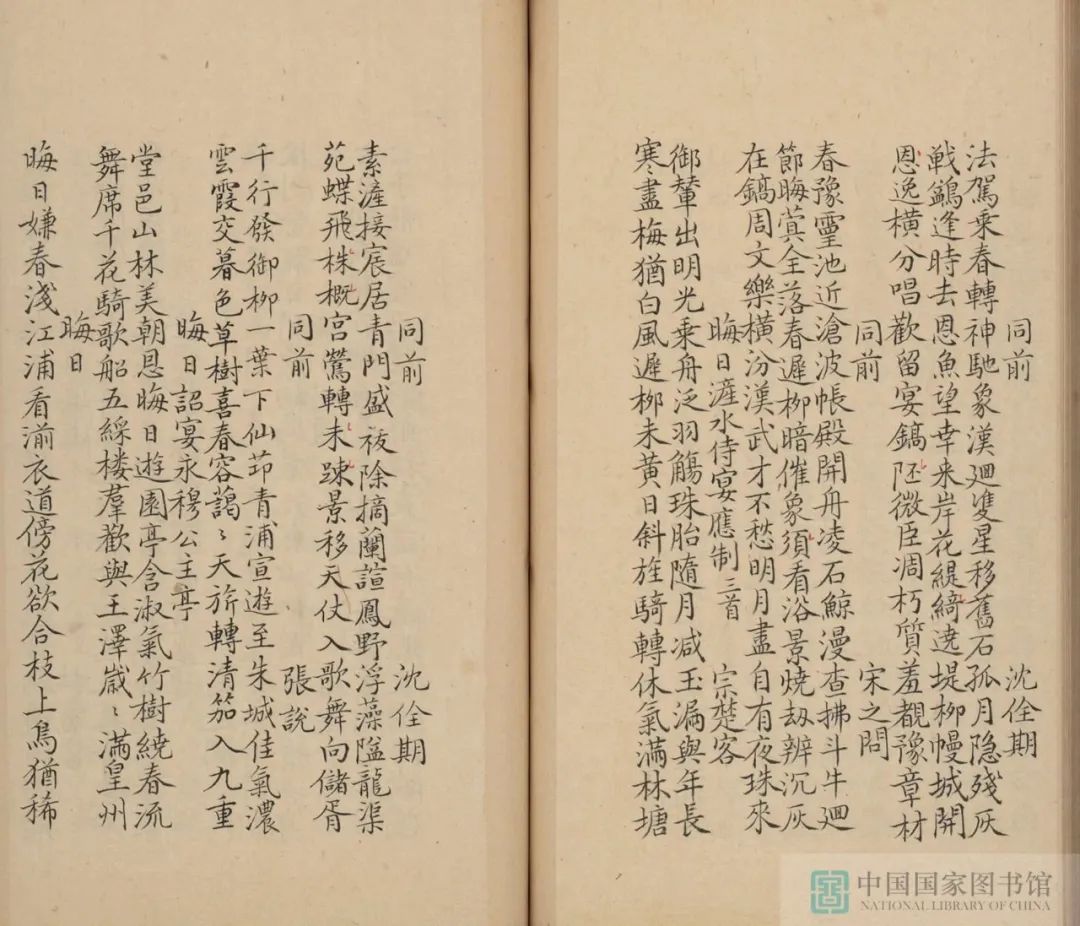 同前 沈佺期
法駕乗春轉神馳象漢廻雙星移舊石孤月隐残灰
戦鷁逢時去恩魚望幸来岸花緹綺遶堤柳幔城開
恩逸横分唱歡留宴鎬陊微臣凋朽質羞覩豫章材
同前 宋之問
春豫靈池近滄波帳殿開舟凌石鯨漫查拂斗牛廻
節晦蓂全落春遲柳暗催象須看浴景焼刼辨沉灰
在鎬周文樂横汾漢武才不愁明月盡自有夜珠來
晦日滻水侍宴應制三首 宗楚客
御輦出明光乗舟泛羽觴珠胎隨月减玉漏與年長
寒盡梅猶白風遲栁未黄日斜旌騎轉休氣滿林塘
同前 沈佺期
素滻接宸居青門盛祓除摘蘭諠鳳野浮藻隘龍渠
苑蝶飛株概宫鶯轉未踈景移天仗入歌舞向儲胥
同前 張說
千行發御栁一葉下仙茆青浦宣遊至朱城佳氣濃
雲霞交暮色草樹喜春容藹〻天旂轉清笳入九重
晦日詔宴永穆公主亭
堂邑山林美朝恩晦日遊園亭含淑氣竹樹繞春流
舞席千花騎歌船五綵楼羣歡與王澤歳〻滿皇州
晦日
晦日嫌春淺江浦看湔衣道傍花欲合枝上鳥猶稀
中国国家图书馆
NATIONAL LIBRARY OF CHINA